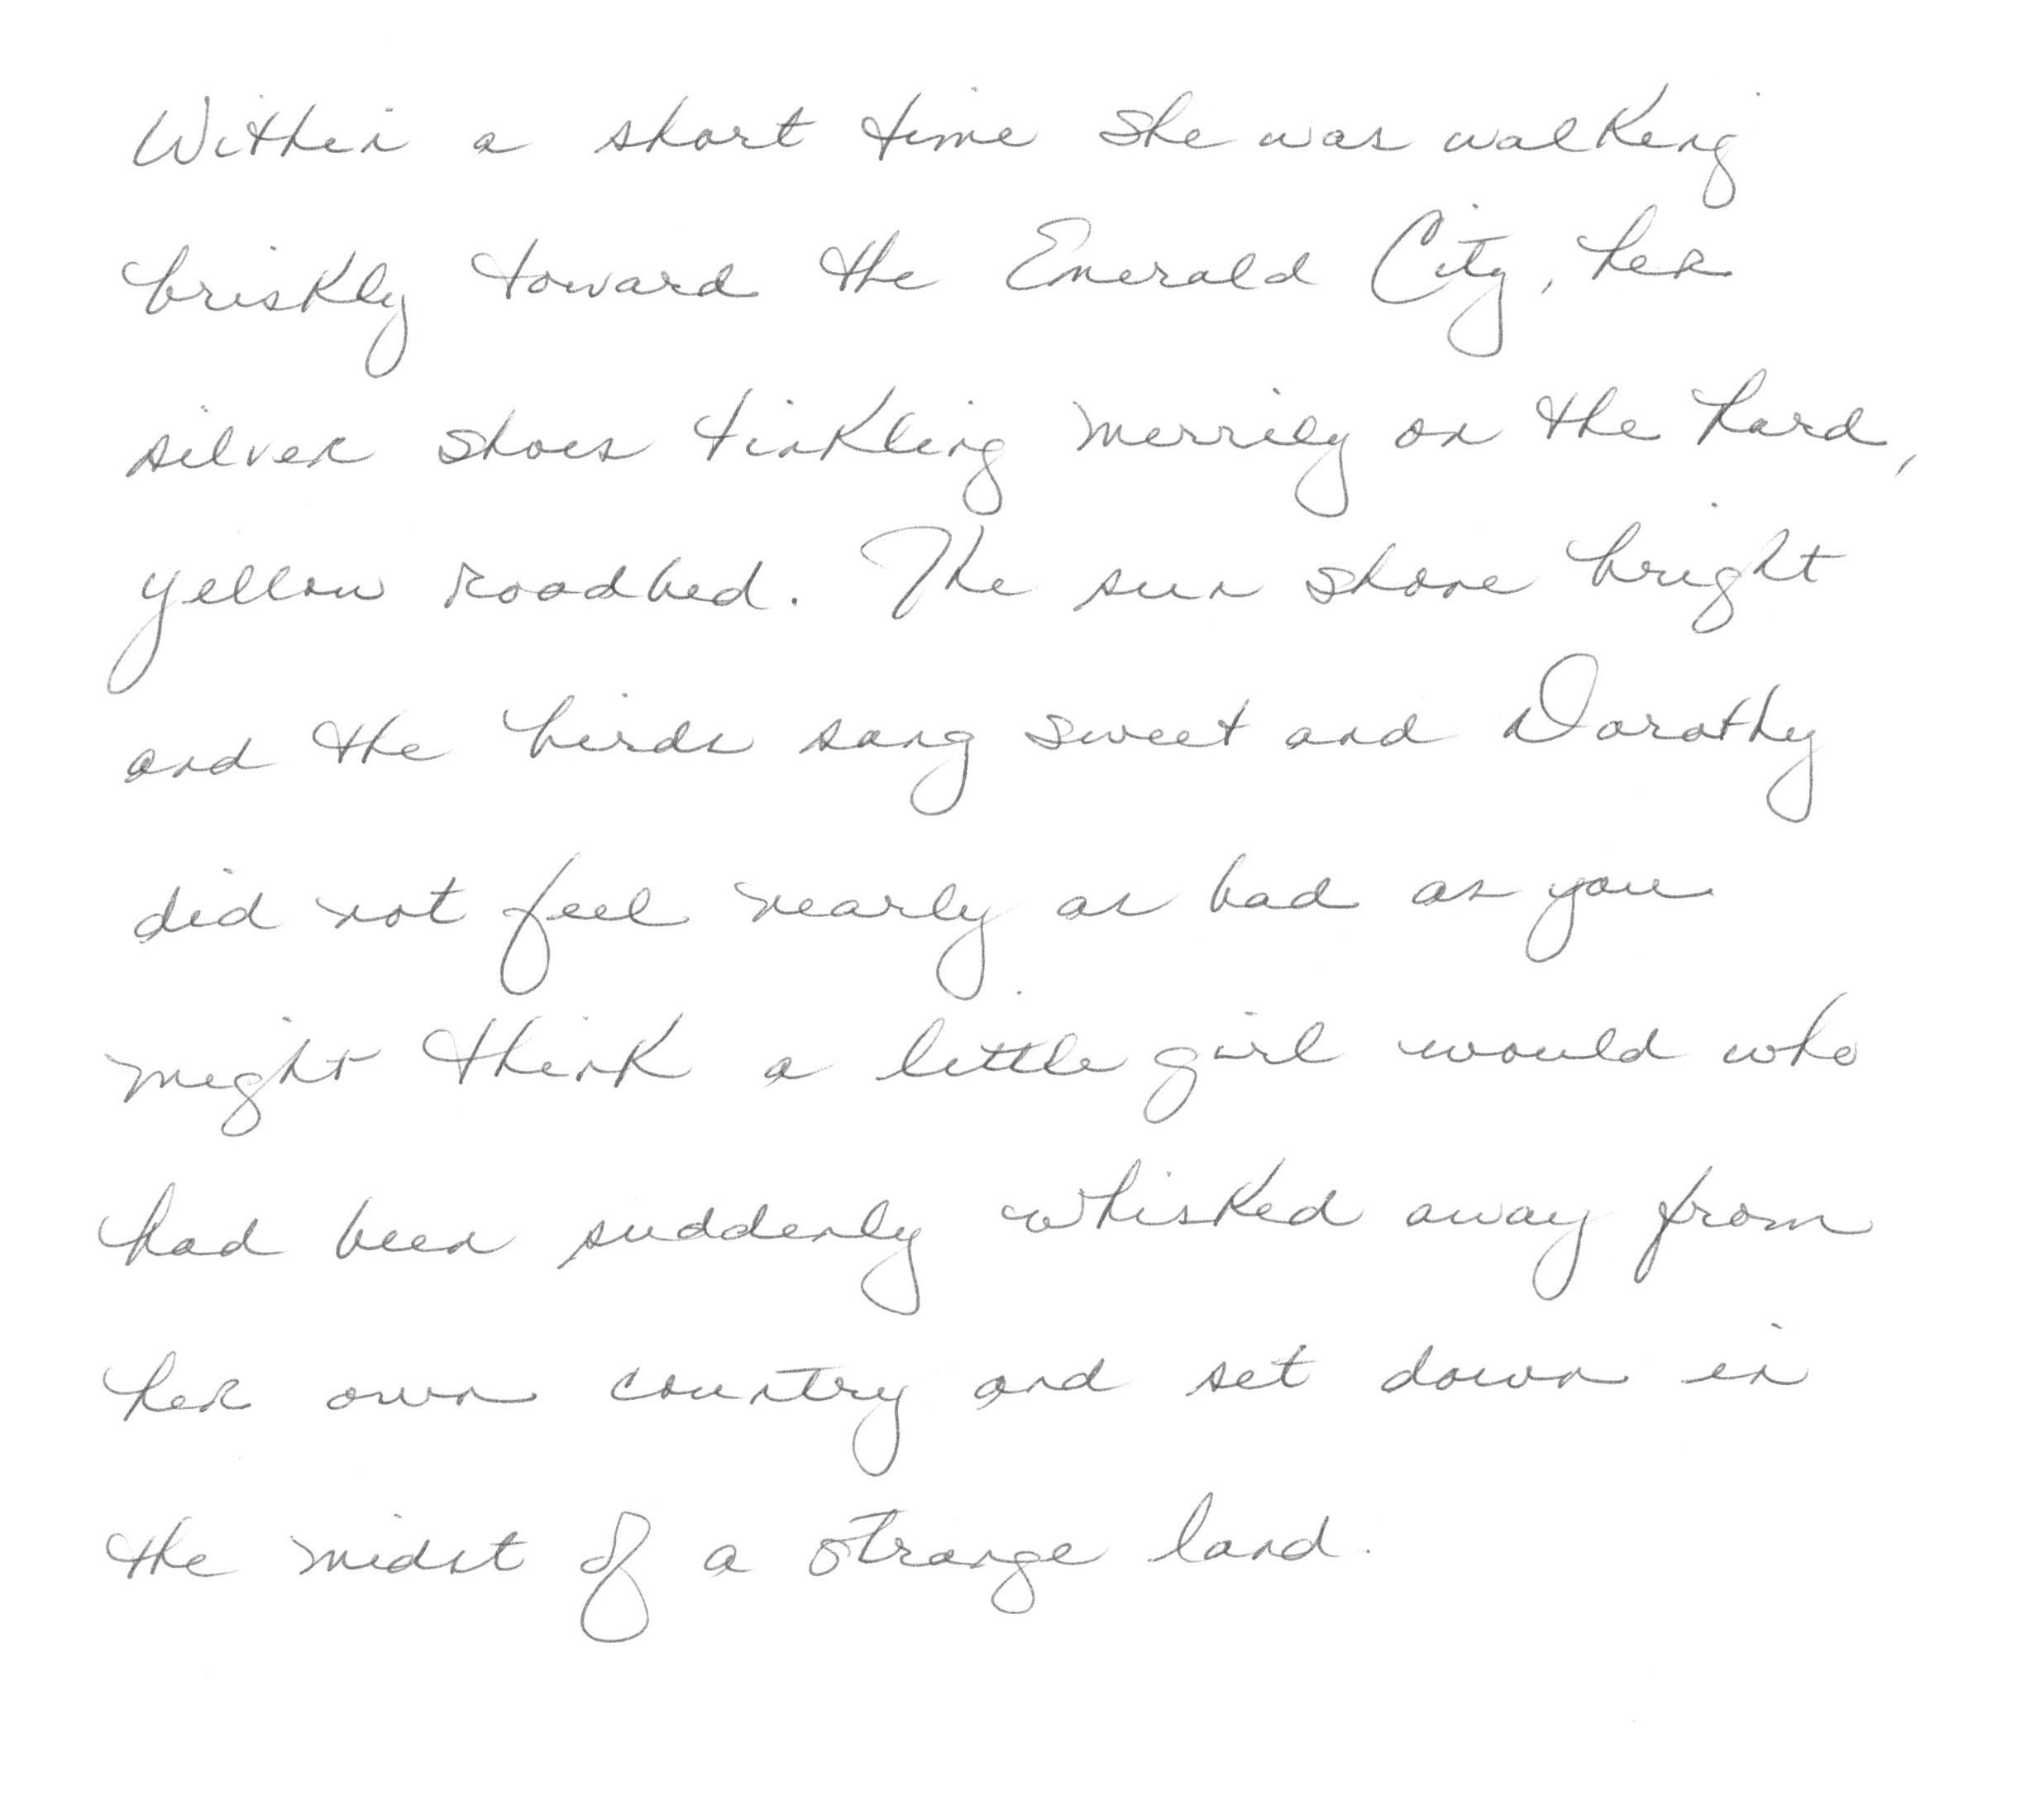 Within a short time she was walking
briskly toward the Emerald City, her
silver shoes tinkling merrily on the hard,
yellow roadbed. The sun shone bright
and the birds sang sweet and Dorothy
did not feel nearly as bad as you
might think a little girl would who
had been suddenly whisked away from
her own country and set down in
the midst of a strange land.